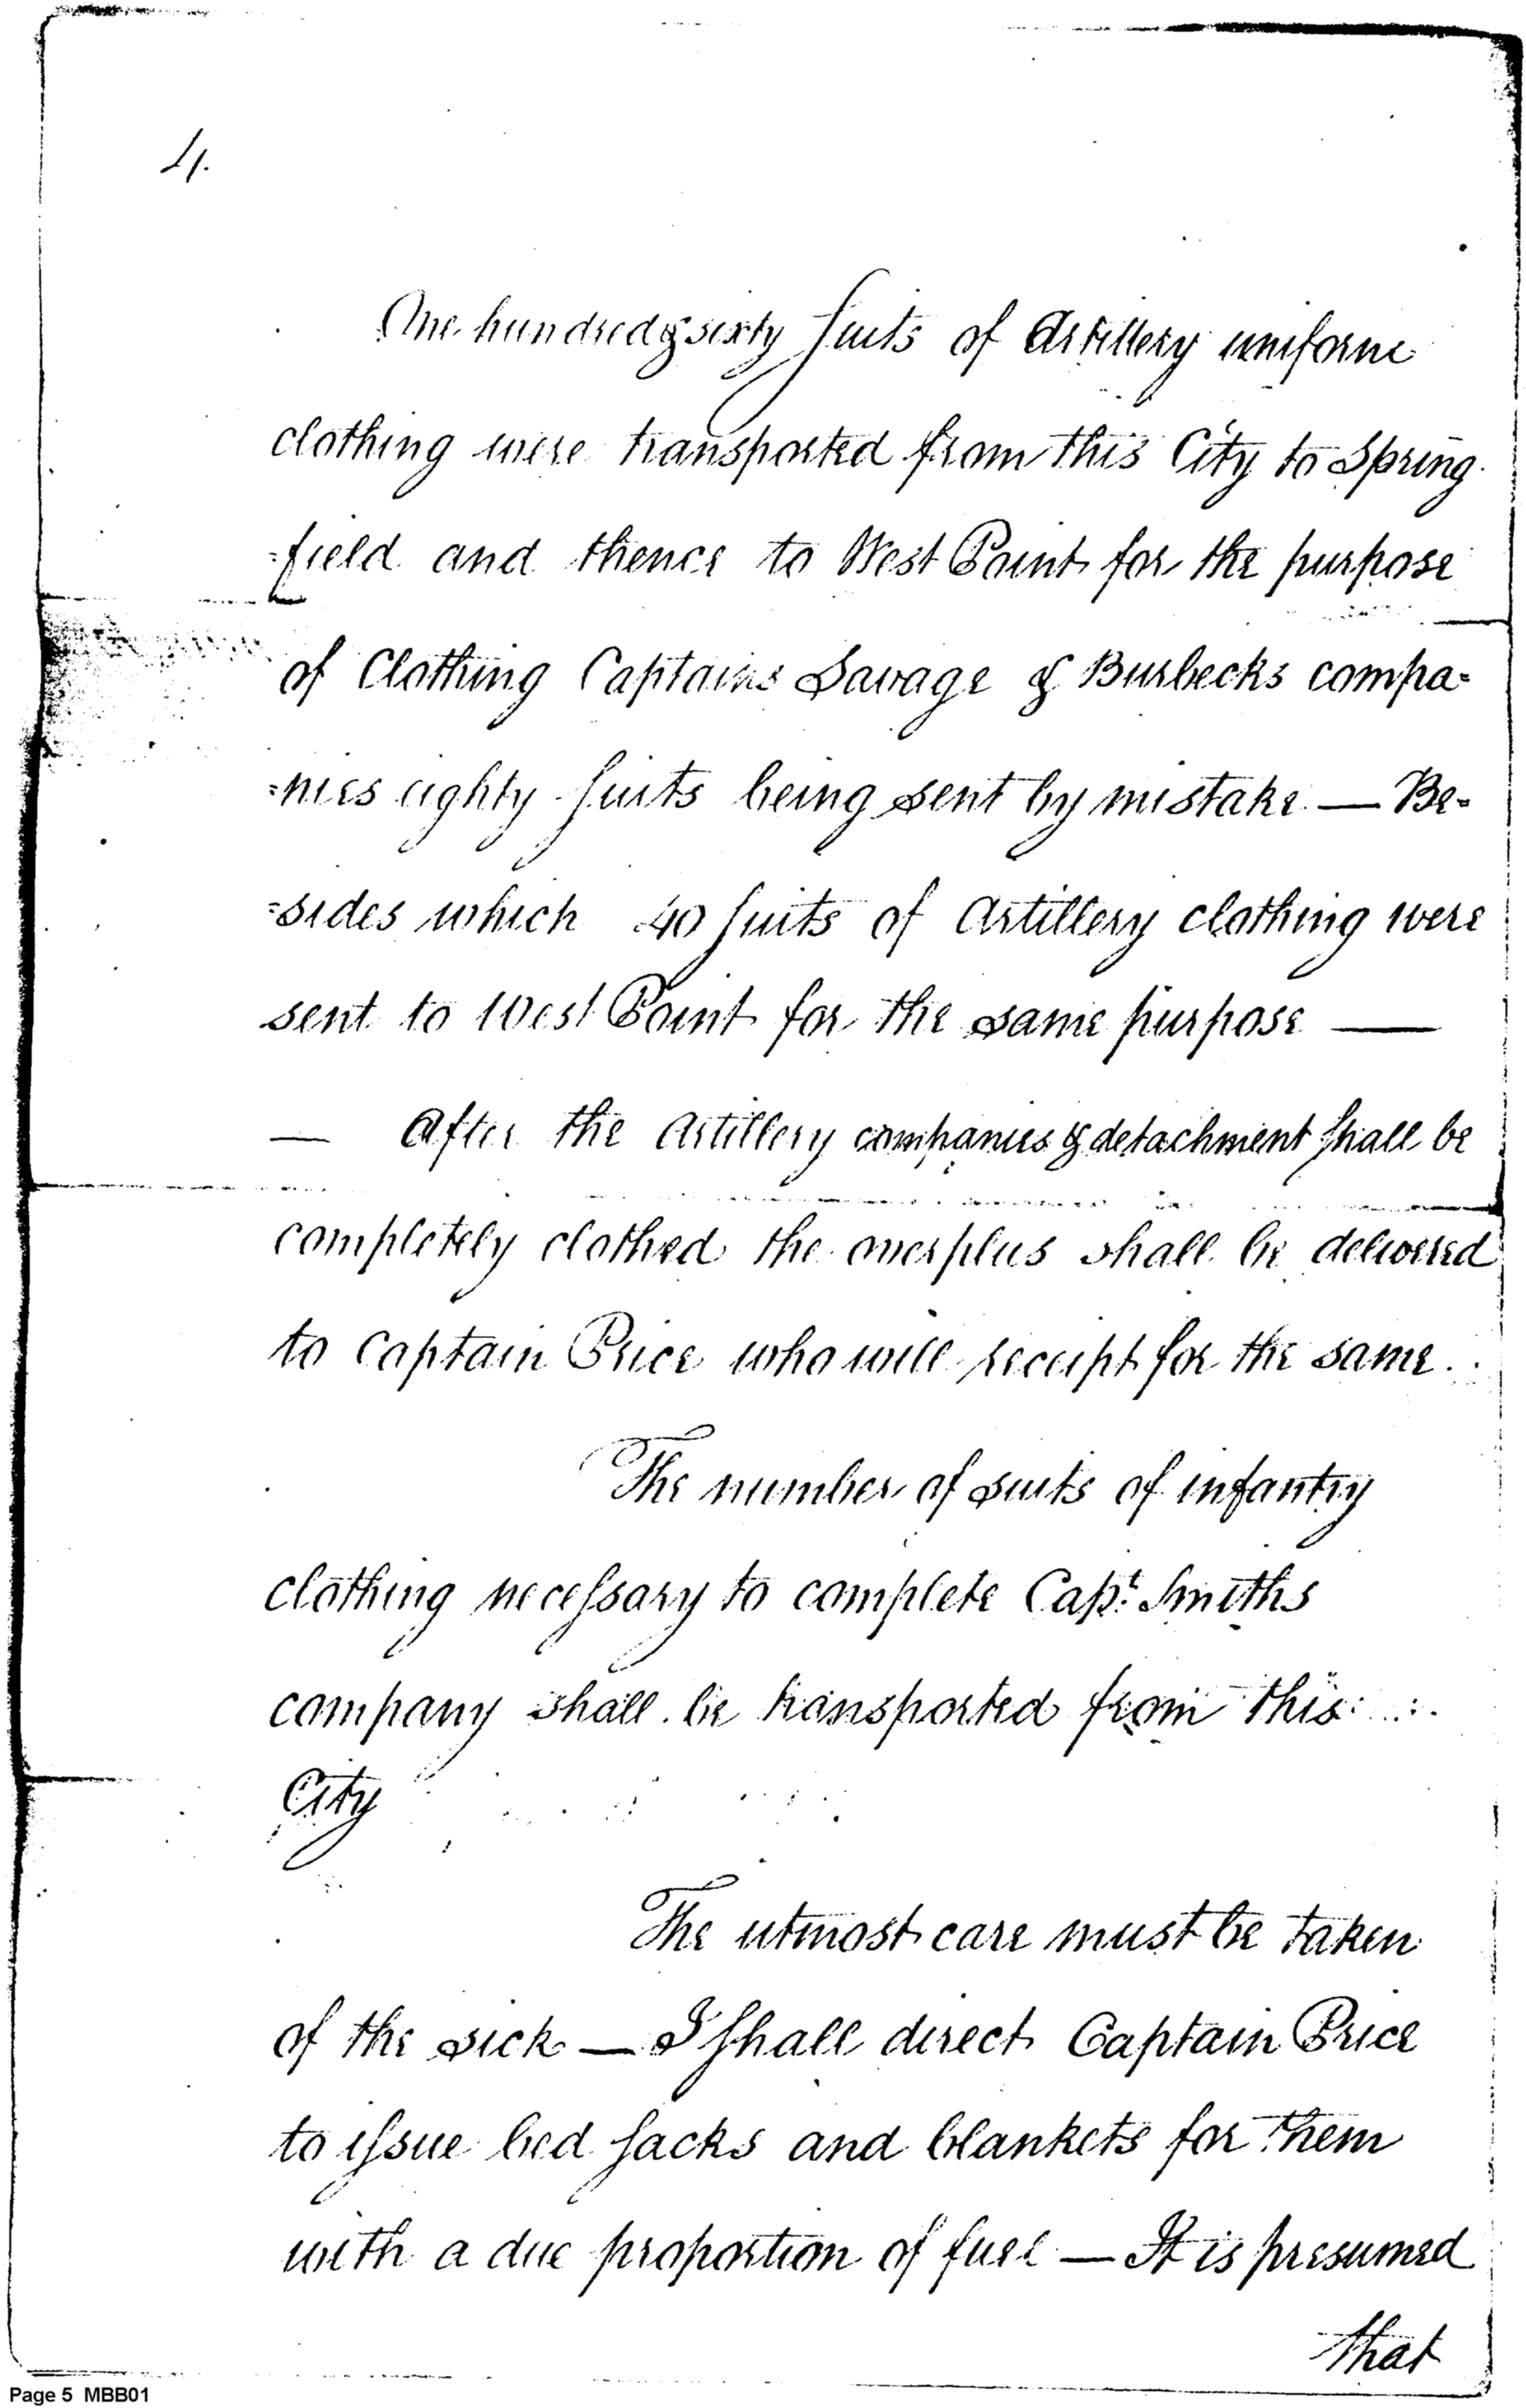 4.
One hundred & sixty suits of Artillery uniform
clothing were transported from this City to Spring
=field and thence to West Point for the purpose
of Clothing Captains Savage & Burbecks compa=
=nies eighty suits being sent by mistake — Be=
=sides which 40 suits of Artillery clothing were
sent to West Point for the same purpose —
— After the Artillery companies & detachment shall be
completely clothed the overplus shall be delivered
to Captain Price who will receipt for the same.
The number of suits of infantry
clothing necessary to complete Capt. Smiths
company shall be transported from this
City
The utmost care must be taken
of the sick — I shall direct Captain Price
to issue bed sacks and blankets for them
with a due proportion of fuel — It is presumed
that
Page 5 MBB01